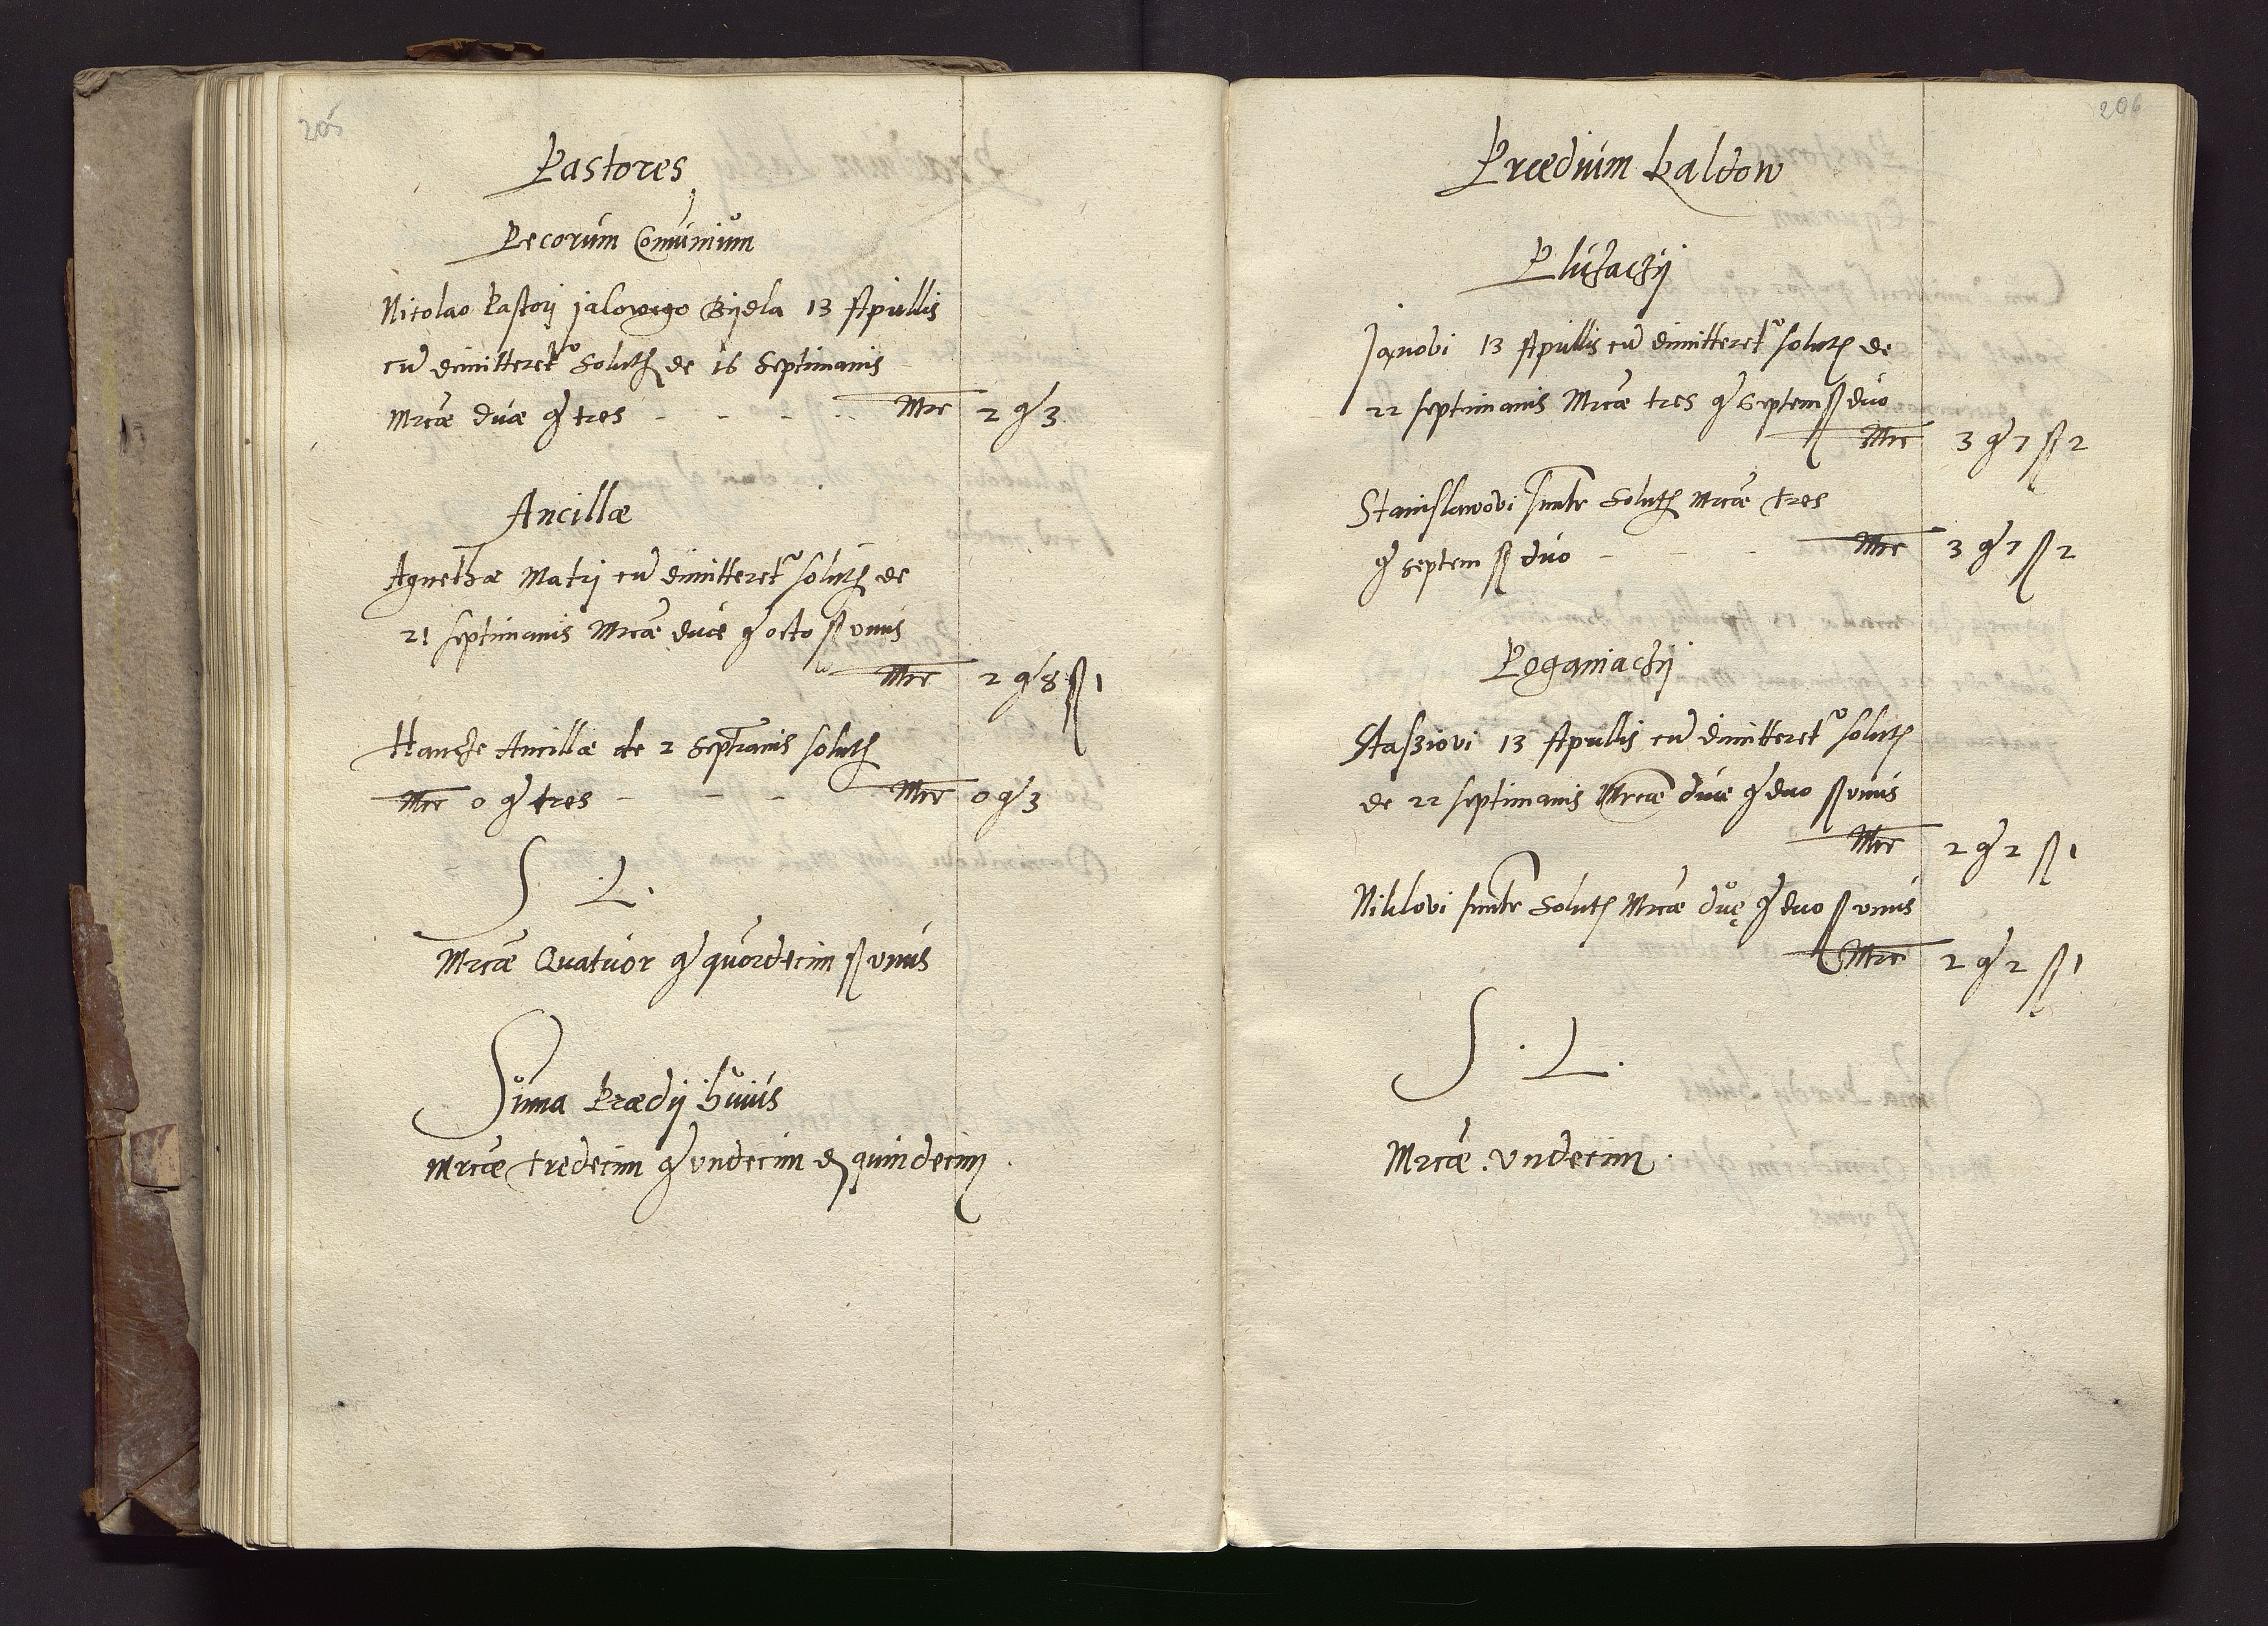 205
Pastores
Pecorum Com̄unium
Nicolao Pastorj jalowego Bijdla 13 Apriłlis
cū dimitteretr Solutę de 16 Septimanis
Mrcæ duæ gſ tres - - - - Mrc 2 gſ 3
Ancillæ
Agnethæ Matrj cū dimitteretr solutę de
21 septimanis Mrcæ duæ gſ octo ſſ vnus
Mrc 2 gſ 8 ſſ 1
Hanche Ancillæ de 2 Septianis solutę
Mrc 0 gſ tres - - - Mrc 0 gſ 3
S. L.
Mrcæ Quatuor gſ quordecim ſſ vnus
Suma Prædij huius
Mrcæ tredecim gſ vndecim d quindecim.
206
Prædium Kaldow
Pluzachij
Jaxnobi 13 Apullis cū dimitteretr solutę de
22 septimanis Mrcæ tres gſ septem ſſ duo
Mrc 3 gſ 7 ſſ 2
Stanislawovi simłr Solutę Mrcæ tres
gſ septem ſſ duo - - - Mrc 3 gſ 7 ſſ 2
Poganiachij
Stasziovi 13 Apullis cū dimitteretr solutę
de 22 septimanis Mrcæ duæ gſ duo ſſ vnus
Mrc 2 gſ 2 ſſ 1
Niklovi simłr Solutę Mrcæ duę gſ duo ſſ vnus
Mrc 2 gſ 2 ſſ 1
S. L.
Mrcæ. vndecim.